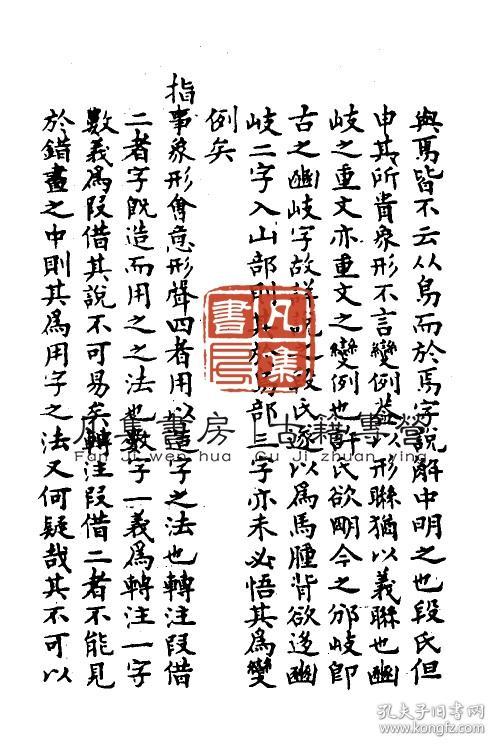 與焉皆不云从烏而於焉字說解中明之也段氏但
申其所貴象形不言變例葢以形聯猶以義聯也豳
岐之重文亦重文之變例也許氏欲明今之邠岐卽
古之豳岐字故詳說之段氏遂以爲馬腫背欲迻豳
岐二字入山部則其於部三字亦未必悟其爲變
例矣
指事象形會意形聲四者用以造字之法也轉注叚借
二者字旣造而用之之法也數字一義爲轉注一字
數義爲叚借其說不可易矣轉注叚借二者不能見
於錯畫之中則其爲用字之法又何疑哉其不可以
凡集書局
凡集書房 | 古籍專營
Fan Ji wen hua Gu Ji zhuan ying
孔夫子旧书网